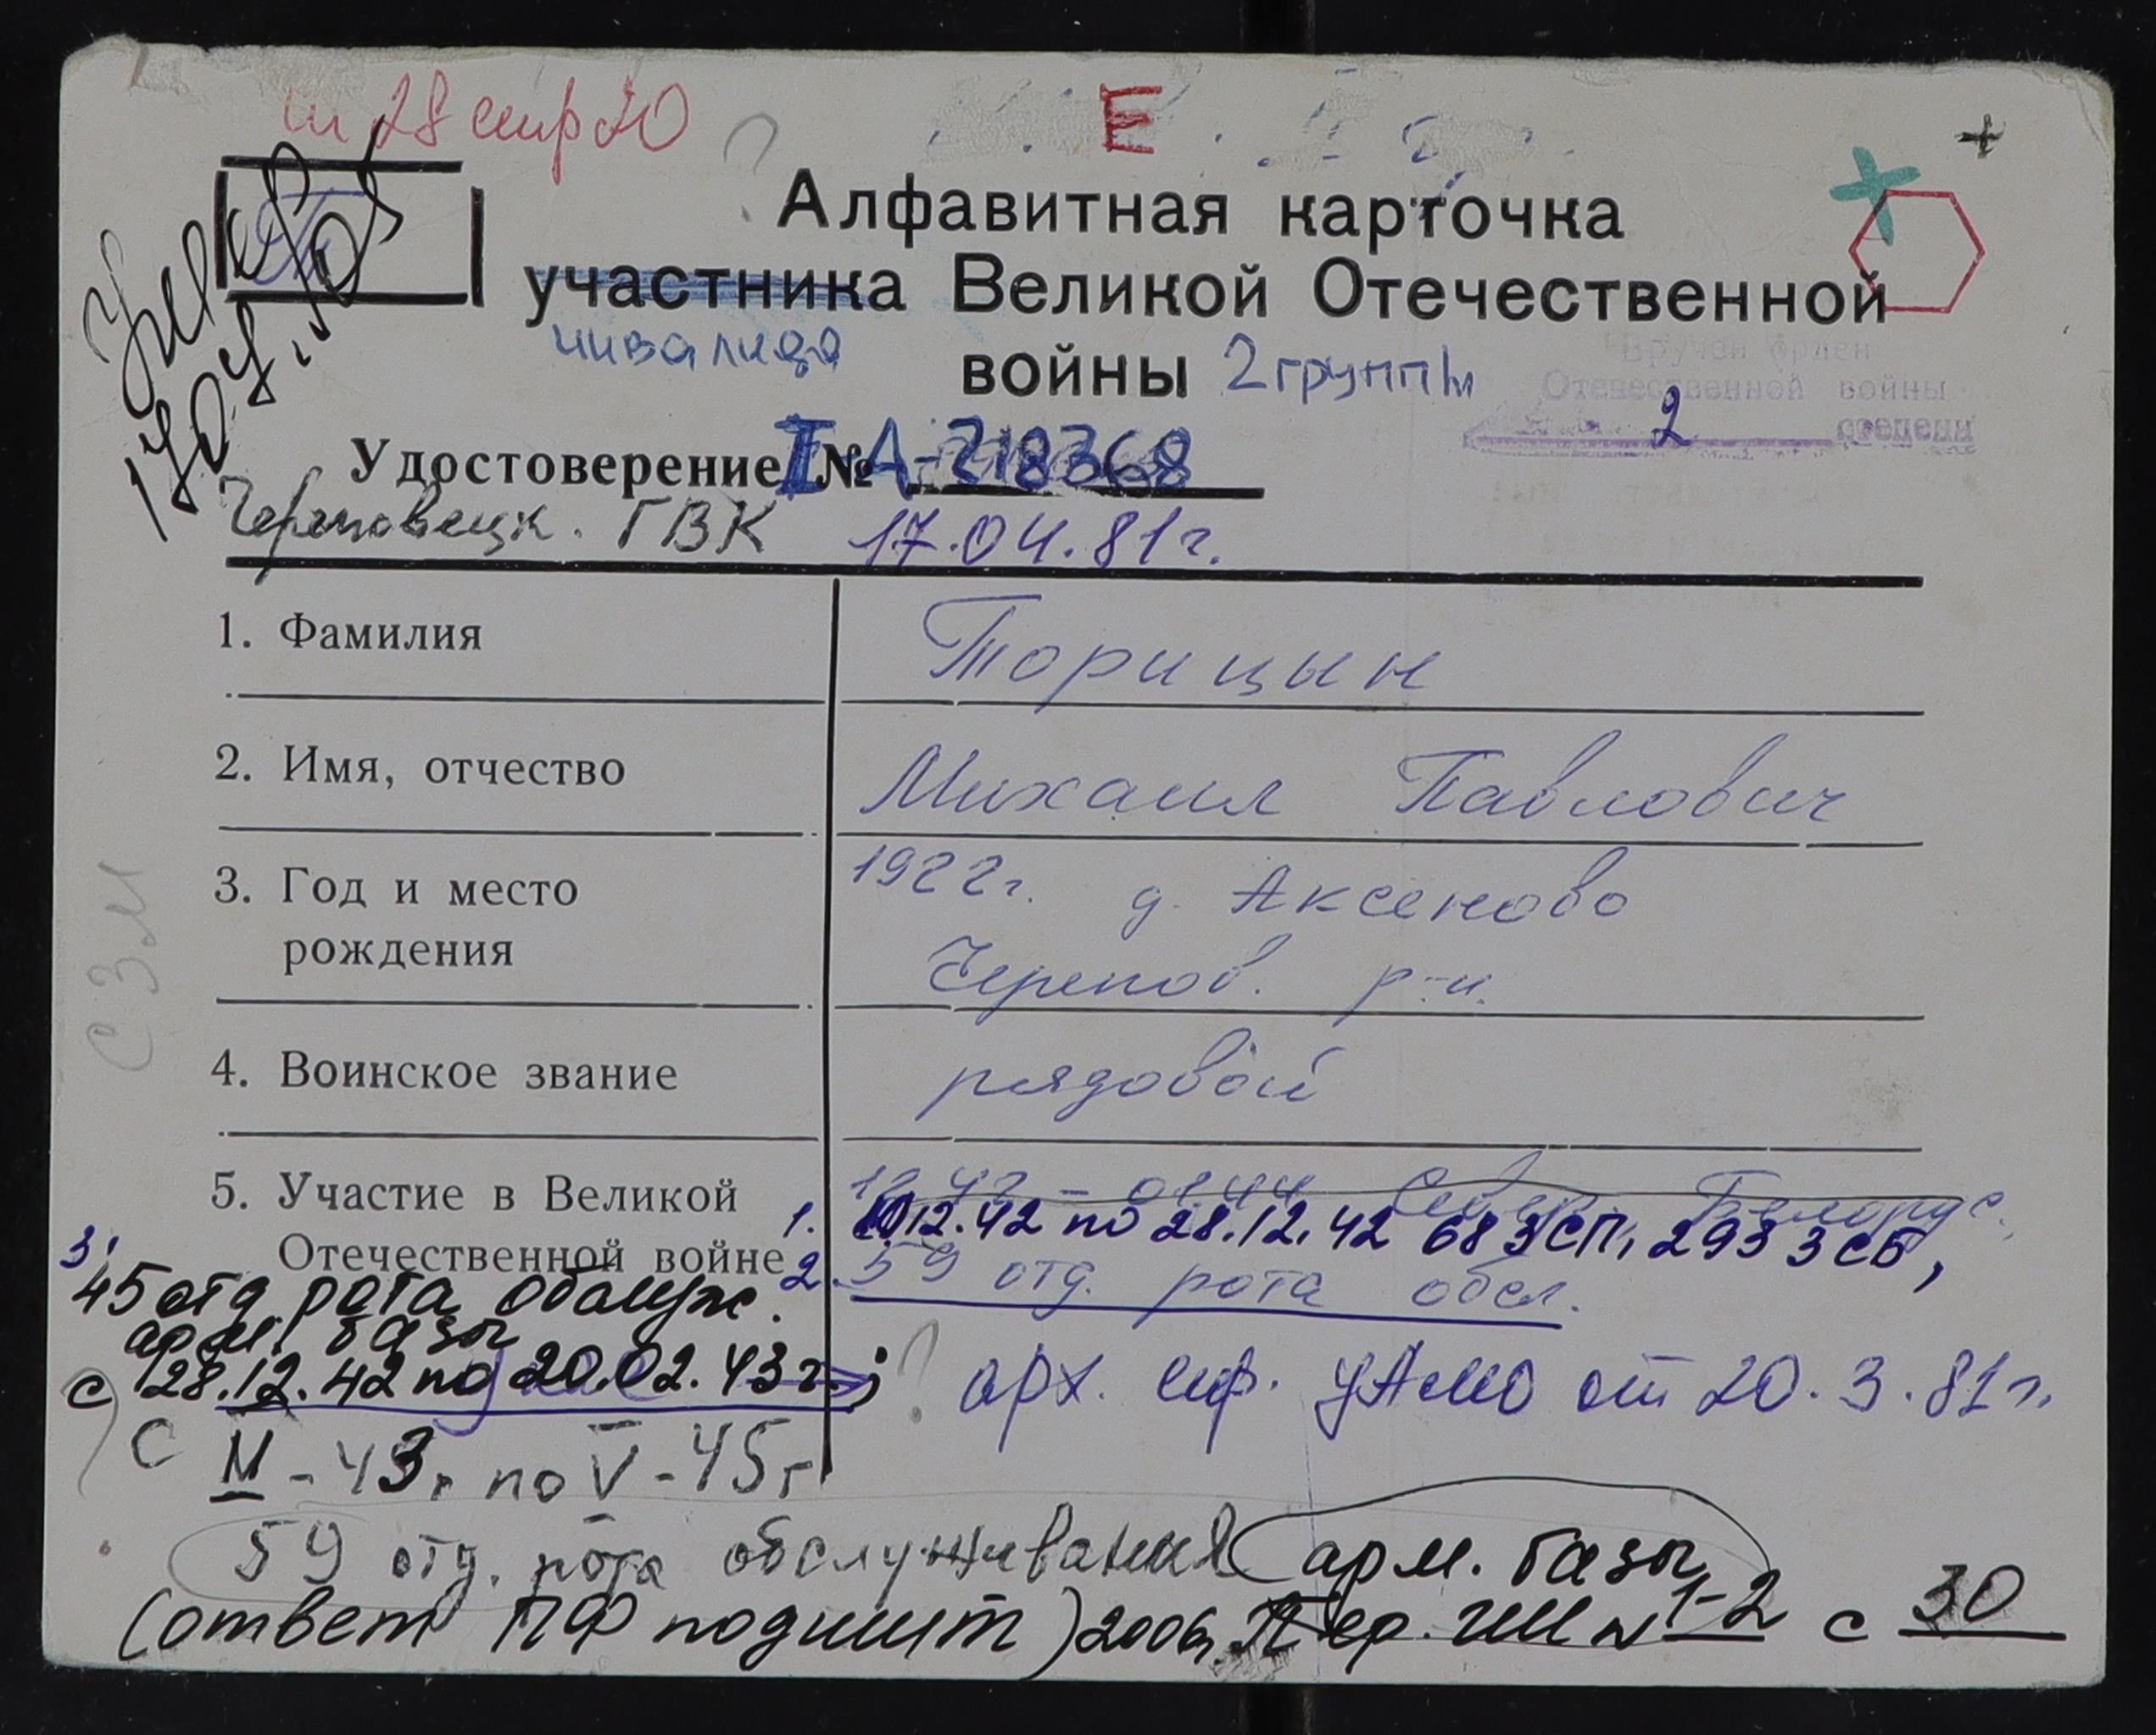 28 стр 20
Е
Алфавитная карточка
участника Великой Отечественной
инвалида
войны 2 группы
Вручен орден
Отечественной войны
2 степени
Удостоверение I №А-218368
Череповецк. ГВК 17.04.81г.
1. Фамилия Торицын
2. Имя, отчество Михаил Павлович
3. Год и место 1922г. д. Аксеново
рождения Черепов. р-н.
СЗМ
4. Воинское звание рядовой
5. Участие в Великой
Отечественной войне
1. 12.42 по 28.12.42 683 СП, 293 ЗСБ,
2. 59 отд. рота обсл.
3. 45 отд рота обслуж.
арм. базы
с 28.12.42 по 20.02.43г.;
? арх. спр. ЦАМО от 20.3.81г.
с -43г по V-45г
59 отд. рота обслуживания арм. базы
(ответ ПФ подшит) 2006г. Пер. № 1-2 с 30